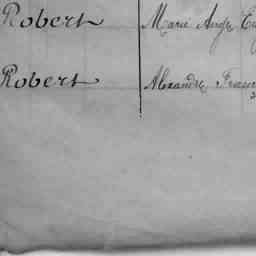 Robert Marie Ange
Robert Alexandre